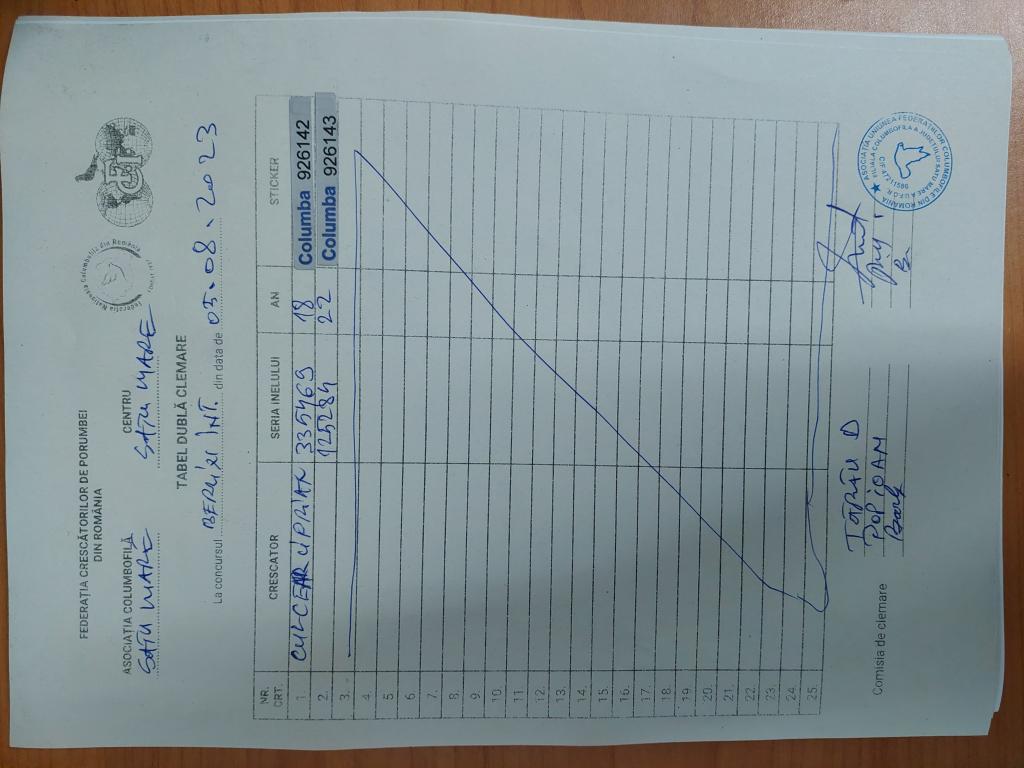 FEDERAȚIA CRESCĂTORILOR DE PORUMBEI
DIN ROMÂNIA
ASOCIAȚIA COLUMBOFILĂ
SATU MARE
CENTRU
SATU MARE
Federația Națională Columbofilă din România
FCI
TABEL DUBLĂ CLEMARE
La concursul BERLIN INT. din data de 05.08.2023
NR. CRT. CRESCATOR SERIA INELULUI AN STICKER
1. CULCEAR CIPRIAN 335469 18 Columba 926142
2. 125284 22 Columba 926143
3.
4.
5.
6.
7.
8.
9.
10.
11.
12.
13.
14.
15.
16.
17.
18.
19.
20.
21.
22.
23.
24.
25.
Comisia de clemare
TĂTARU D
POP IOAN
ASOCIAȚIA UNIUNEA FEDERAȚIILOR COLUMBOFILE DIN ROMÂNIA
FILIALA COLUMBOFILĂ A JUDEȚULUI SATU MARE A U.F.C.R.